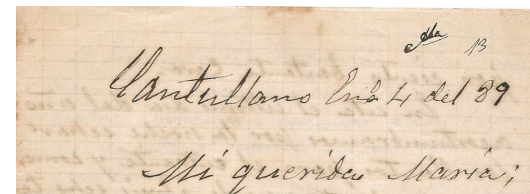 13
Cantullano En.o 4 del 89
Mi querida Maria;